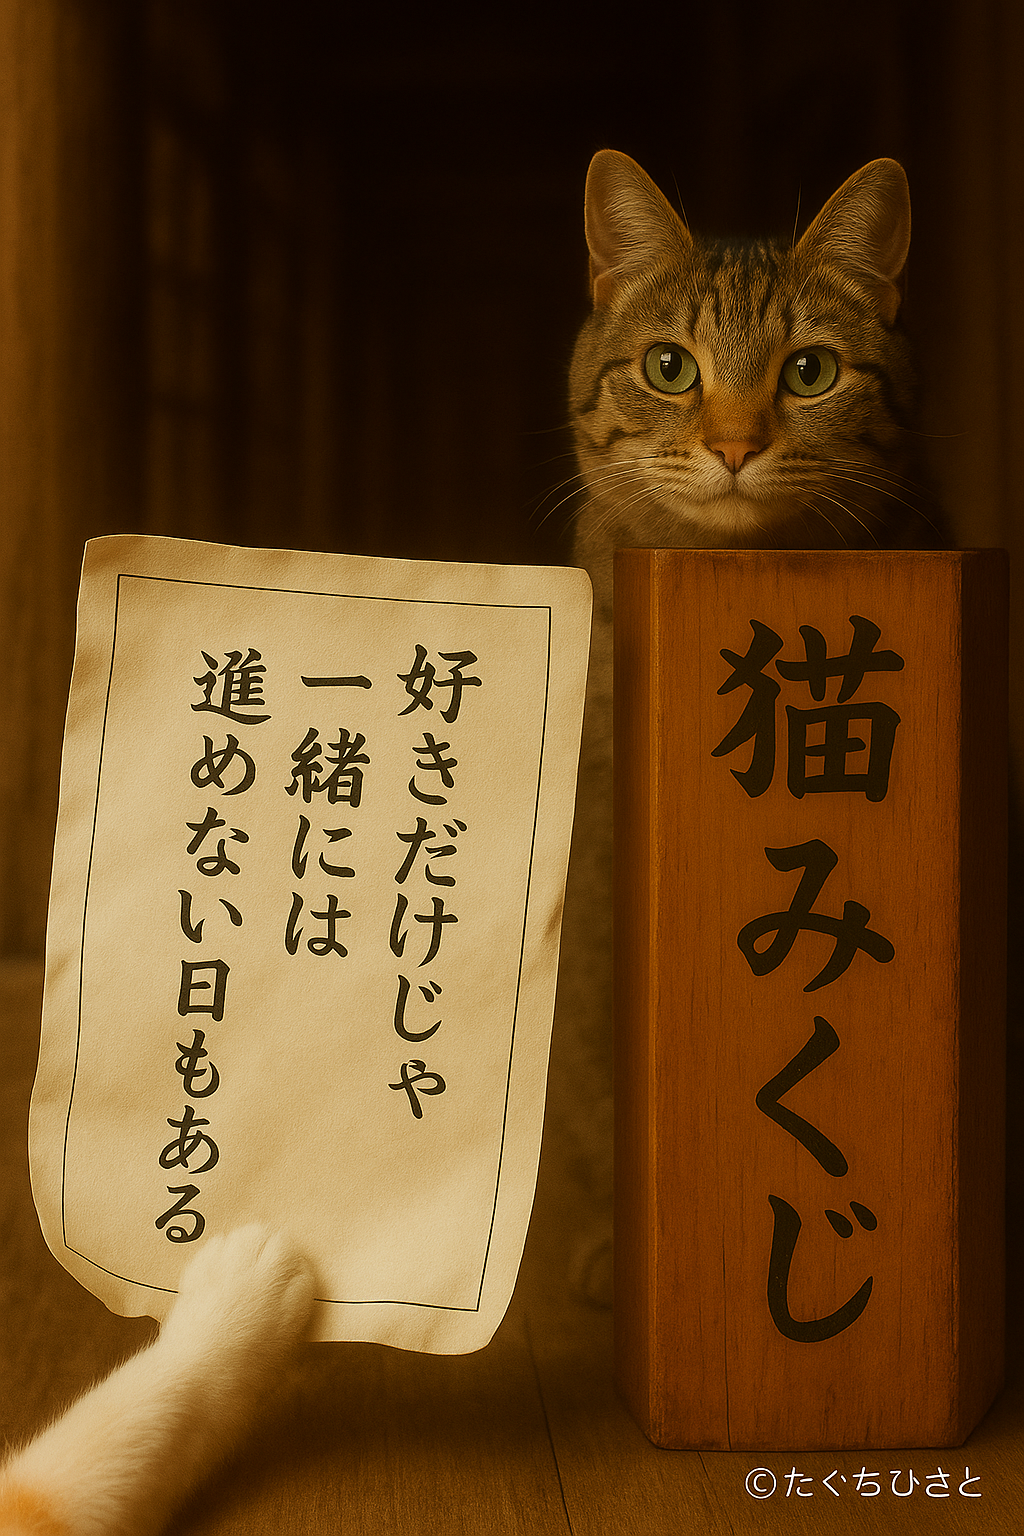 好きだけじゃ
一緒には
進めない日もある
猫みくじ
©たぐちひさと